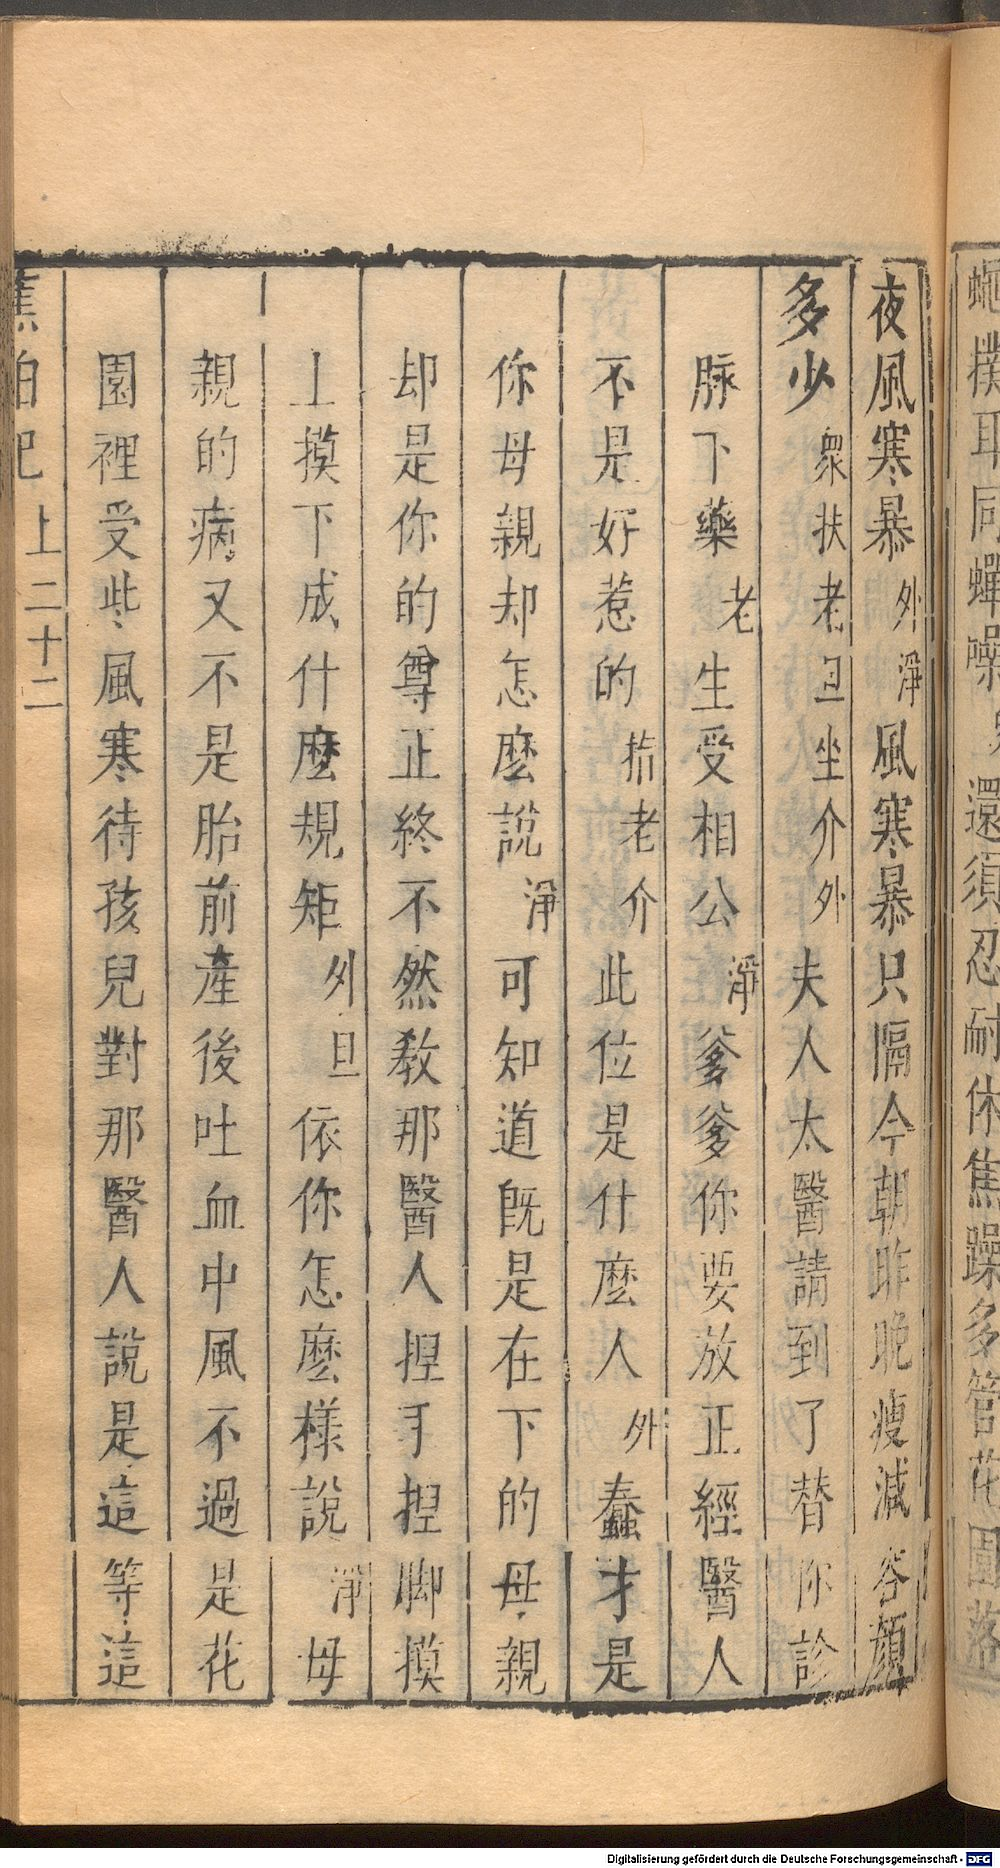 蠅撲耳同蟬噪 還須忍耐休焦躁多管花園落
夜風寒暴外淨風寒暴只隔今朝昨晚瘦減容顏
多少衆扶老旦坐介外夫人太醫請到了替你診
脉下藥老生受相公淨爹爹你要放正經醫人
不是好惹的指老介此位是什麽人外蠢才是
你母親却怎麽說淨可知道旣是在下的母親
却是你的尊正終不然教那醫人揑手揑脚摸
上摸下成什麽規矩外旦依你怎麽樣說淨母
親的病又不是胎前產後吐血中風不過是花
園裡受些風寒待孩兒對那醫人說是這等這
蕉帕記 上二十二
Digitalisierung gefördert durch die Deutsche Forschungsgemeinschaft - DFG